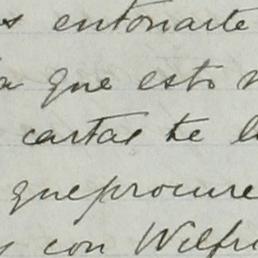 s entonarte
a que esto
cartas te l
que procure
y con Wilfri